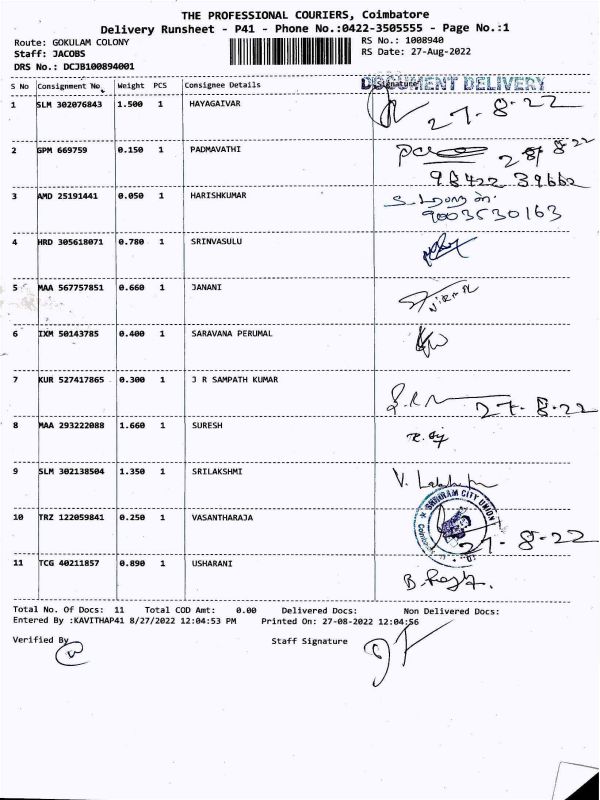 THE PROFESSIONAL COURIERS, Coimbatore
Delivery Runsheet - P41 - Phone No.:0422-3505555 - Page No.:1
Route: GOKULAM COLONY RS No.: 1008940
Staff: JACOBS RS Date: 27-Aug-2022
DRS No.: DCJB100894001
S No Consignment No. Weight PCS Consignee Details Signature
DOCUMENT DELIVERY
1 SLM 302076843 1.500 1 HAYAGAIVAR
27-8-22
2 GPM 669759 0.150 1 PADMAVATHI
28/8-22
98422 39662
3 AMD 25191441 0.050 1 HARISHKUMAR
9003530163
4 HRD 305618071 0.780 1 SRINVASULU
5 MAA 567757851 0.660 1 JANANI
6 IXM 50143785 0.400 1 SARAVANA PERUMAL
7 KUR 527417865 0.300 1 J R SAMPATH KUMAR
27-8-22
8 MAA 293222088 1.660 1 SURESH
9 SLM 302138504 1.350 1 SRILAKSHMI
SHRIRAM CITY UNION
10 TRZ 122059841 0.250 1 VASANTHARAJA
27-8-22
11 TCG 40211857 0.890 1 USHARANI
Total No. Of Docs: 11 Total COD Amt: 0.00 Delivered Docs: Non Delivered Docs:
Entered By :KAVITHAP41 8/27/2022 12:04:53 PM Printed On: 27-08-2022 12:04:56
Verified By Staff Signature